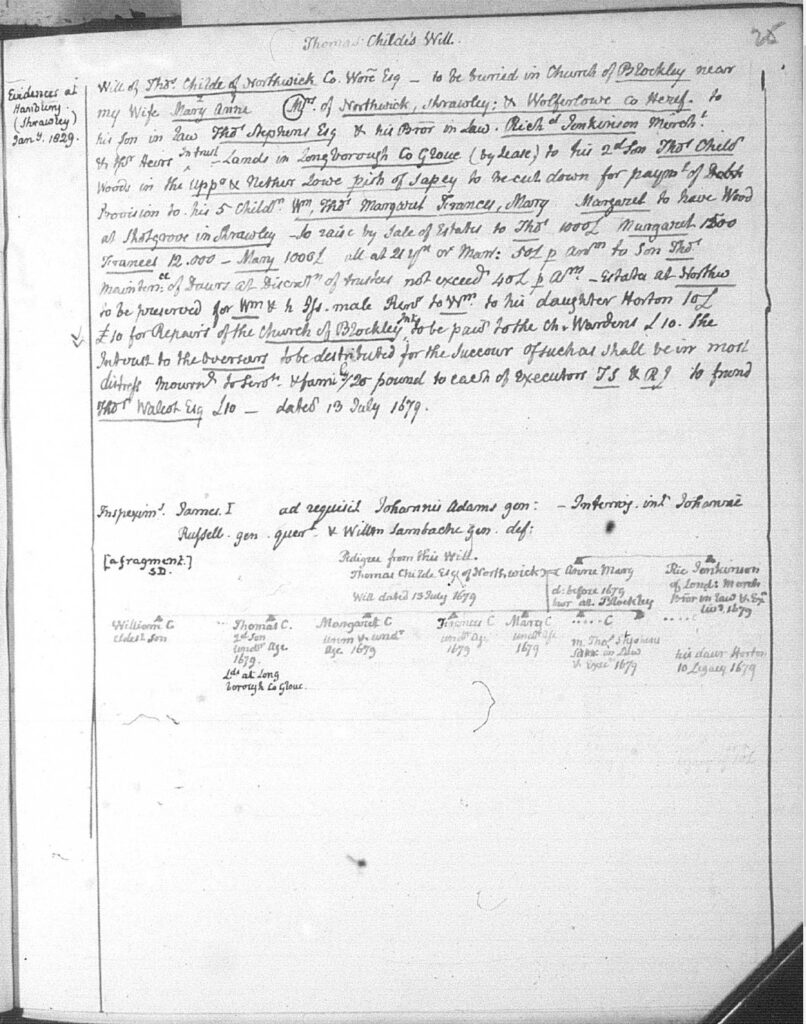 Thomas Childe's Will.
25
Evidences at
Hanbling
(Shrawley)
Jany. 1829.
Will of Thos. Childe of Northwick Co. Worc Esq — to be buried in Church of Blockley near
my Wife Mary Anne Mrs. of Northwick, Shrawley: & Wolferlowe Co Heref. to
his Son in Law Thos Stephens Esq & his Bror in Law. Richd Jenkinson Mercht
& thr Heirs in trust — Lands in Longborough Co Glouc (by Lease) to his 2d Son Thos Child
Woods in the Uppr & Nether Lowe pish of Sapey to be cut down for paymt of Debts
Provision to his 5 Childn Wm, Thos Margaret Frances, Mary Margaret to have Wood
at Shotgrove in Shrawley — to raise by Sale of Estates to Thos 1000£ Margaret 1500
Frances 12.000 — Mary 1000£ all at 21 yrs or Marr: 50£ p Anm to Son Thos
Maintence of Dawrs at Discretn of trustees not exceedg 40£ p Anm — Estates at Northw
to be preserved for Wm & h Iss. male Remr to Wm. to his daughter Horton 10£
£10 for Repairs of the Church of Blockley to be paid to the Ch: Wardens £10. The
In trust to the overseers to be destributed for the Succour of such as shall be in most
distress Mourng to Servts & family 20 pound to each of Executors T S & R J to friend
Thos Walcot Esq £10 — dated 13 July 1679.
Inspeximt. James I ad requisit Johannis Adams gen: — Interris int Johanne
Russell gen quert & Willm Sambache gen def:
[a fragment.]
S.D.
Pedigree from this Will.
Thomas Childe Esq (of Northwick) = Anne Mary
Will dated 13 July 1679
d: before 1679
bur at Blockley
Ric Jenkinson
of Lond: Merch
Bror in Law & Exr
livg 1679
William C
eldest son
Thomas C.
2d Son
undr Age
1679.
Lds at Long
borough Co Glouc.
Margaret C
unm & undr
Age 1679
Frances C
undr Age
1679
Mary C
undr Age
1679
..... C
m. Thos Stephens
Son in Law
& Exr 1679
..... C
his dawr Horton
10 Legacy 1679